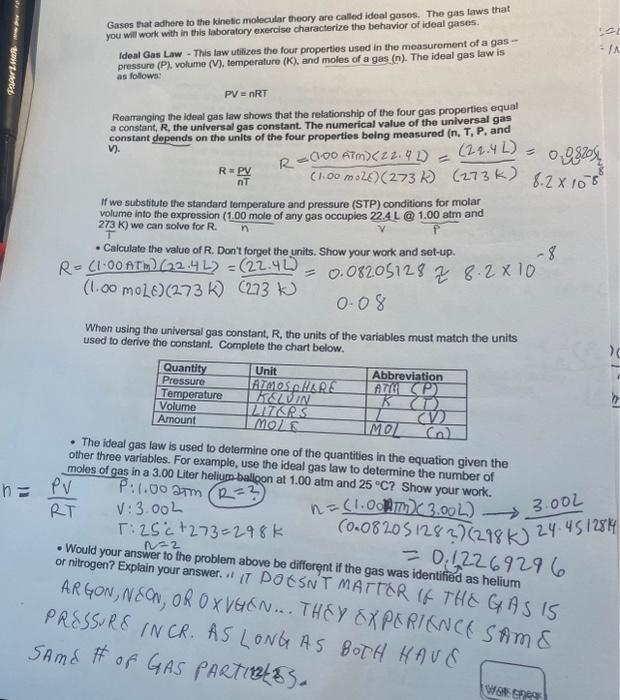 Gases that adhere to the kinetic molecular theory are called ideal gases. The gas laws that
you will work with in this laboratory exercise characterize the behavior of ideal gases.
Ideal Gas Law - This law utilizes the four properties used in the measurement of a gas –
pressure (P), volume (V), temperature (K), and moles of a gas (n). The ideal gas law is
as follows:
PV = nRT
Rearranging the ideal gas law shows that the relationship of the four gas properties equal
a constant, R, the universal gas constant. The numerical value of the universal gas
constant depends on the units of the four properties being measured (n, T, P, and
V).
R = PV
nT
R = (1.00 ATM)(22.4 L) = (22.4L) = 0.08205
(1.00 mole)(273 K) (273 K) 8.2 x 10-8
If we substitute the standard temperature and pressure (STP) conditions for molar
volume into the expression (1.00 mole of any gas occupies 22.4 L @ 1.00 atm and
273 K) we can solve for R.
T n V P
• Calculate the value of R. Don't forget the units. Show your work and set-up.
R = (1.00 ATM)(22.4L) = (22.4L) = 0.08205128 ≈ 8.2 x 10 -8
(1.00 MOLE)(273 K) (273 K)
0.08
When using the universal gas constant, R, the units of the variables must match the units
used to derive the constant. Complete the chart below.
Quantity Unit Abbreviation
Pressure ATMOSPHERE ATM (P)
Temperature KELVIN K (T)
Volume LITERS L (V)
Amount MOLE MOL (n)
• The ideal gas law is used to determine one of the quantities in the equation given the
other three variables. For example, use the ideal gas law to determine the number of
moles of gas in a 3.00 Liter helium balloon at 1.00 atm and 25 °C? Show your work.
n = PV
RT
P: 1.00 atm R=?
V: 3.00L
T: 25°C + 273 = 298K
n = (1.00ATM)(3.00L) → 3.00L
(0.08205128)(298K) 24.451284
= 0.12269296
• Would your answer to the problem above be different if the gas was identified as helium
or nitrogen? Explain your answer. " IT DOESN'T MATTER IF THE GAS IS
ARGON, NEON, OR OXYGEN... THEY EXPERIENCE SAME
PRESSURE INCR. AS LONG AS BOTH HAVE
SAME # OF GAS PARTICLES.